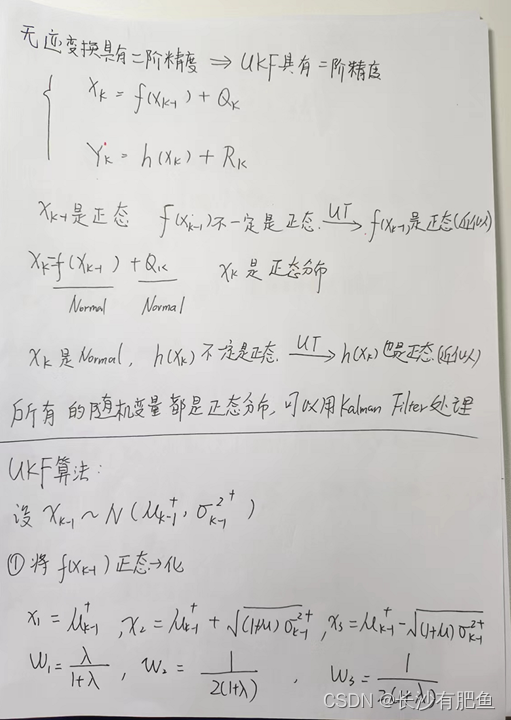 无迹变换具有二阶精度 ⇒ UKF具有二阶精度
{ X_K = f(X_{K-1}) + Q_K
Y_K = h(X_K) + R_K
X_{K-1}是正态 f(X_{K-1})不一定是正态. —UT→ f(X_{K-1})是正态(近似)
X_K=f(X_{K-1}) + Q_K X_K 是正态分布
Normal Normal
X_K 是 Normal, h(X_K) 不一定是正态. —UT→ h(X_K) 也是正态(近似)
所有的随机变量都是正态分布, 可以用Kalman Filter处理
UKF算法:
设 X_{K-1} ~ N(μ_{K-1}^+, σ_{K-1}^{2+})
① 将 f(X_{K-1}) 正态化
x_1 = μ_{K-1}^+, x_2 = μ_{K-1}^+ + √((1+λ)σ_{K-1}^{2+}), x_3 = μ_{K-1}^+ - √((1+λ)σ_{K-1}^{2+})
w_1 = λ/(1+λ), w_2 = 1/(2(1+λ)), w_3 = 1/(2(1+λ))
CSDN @长沙有肥鱼